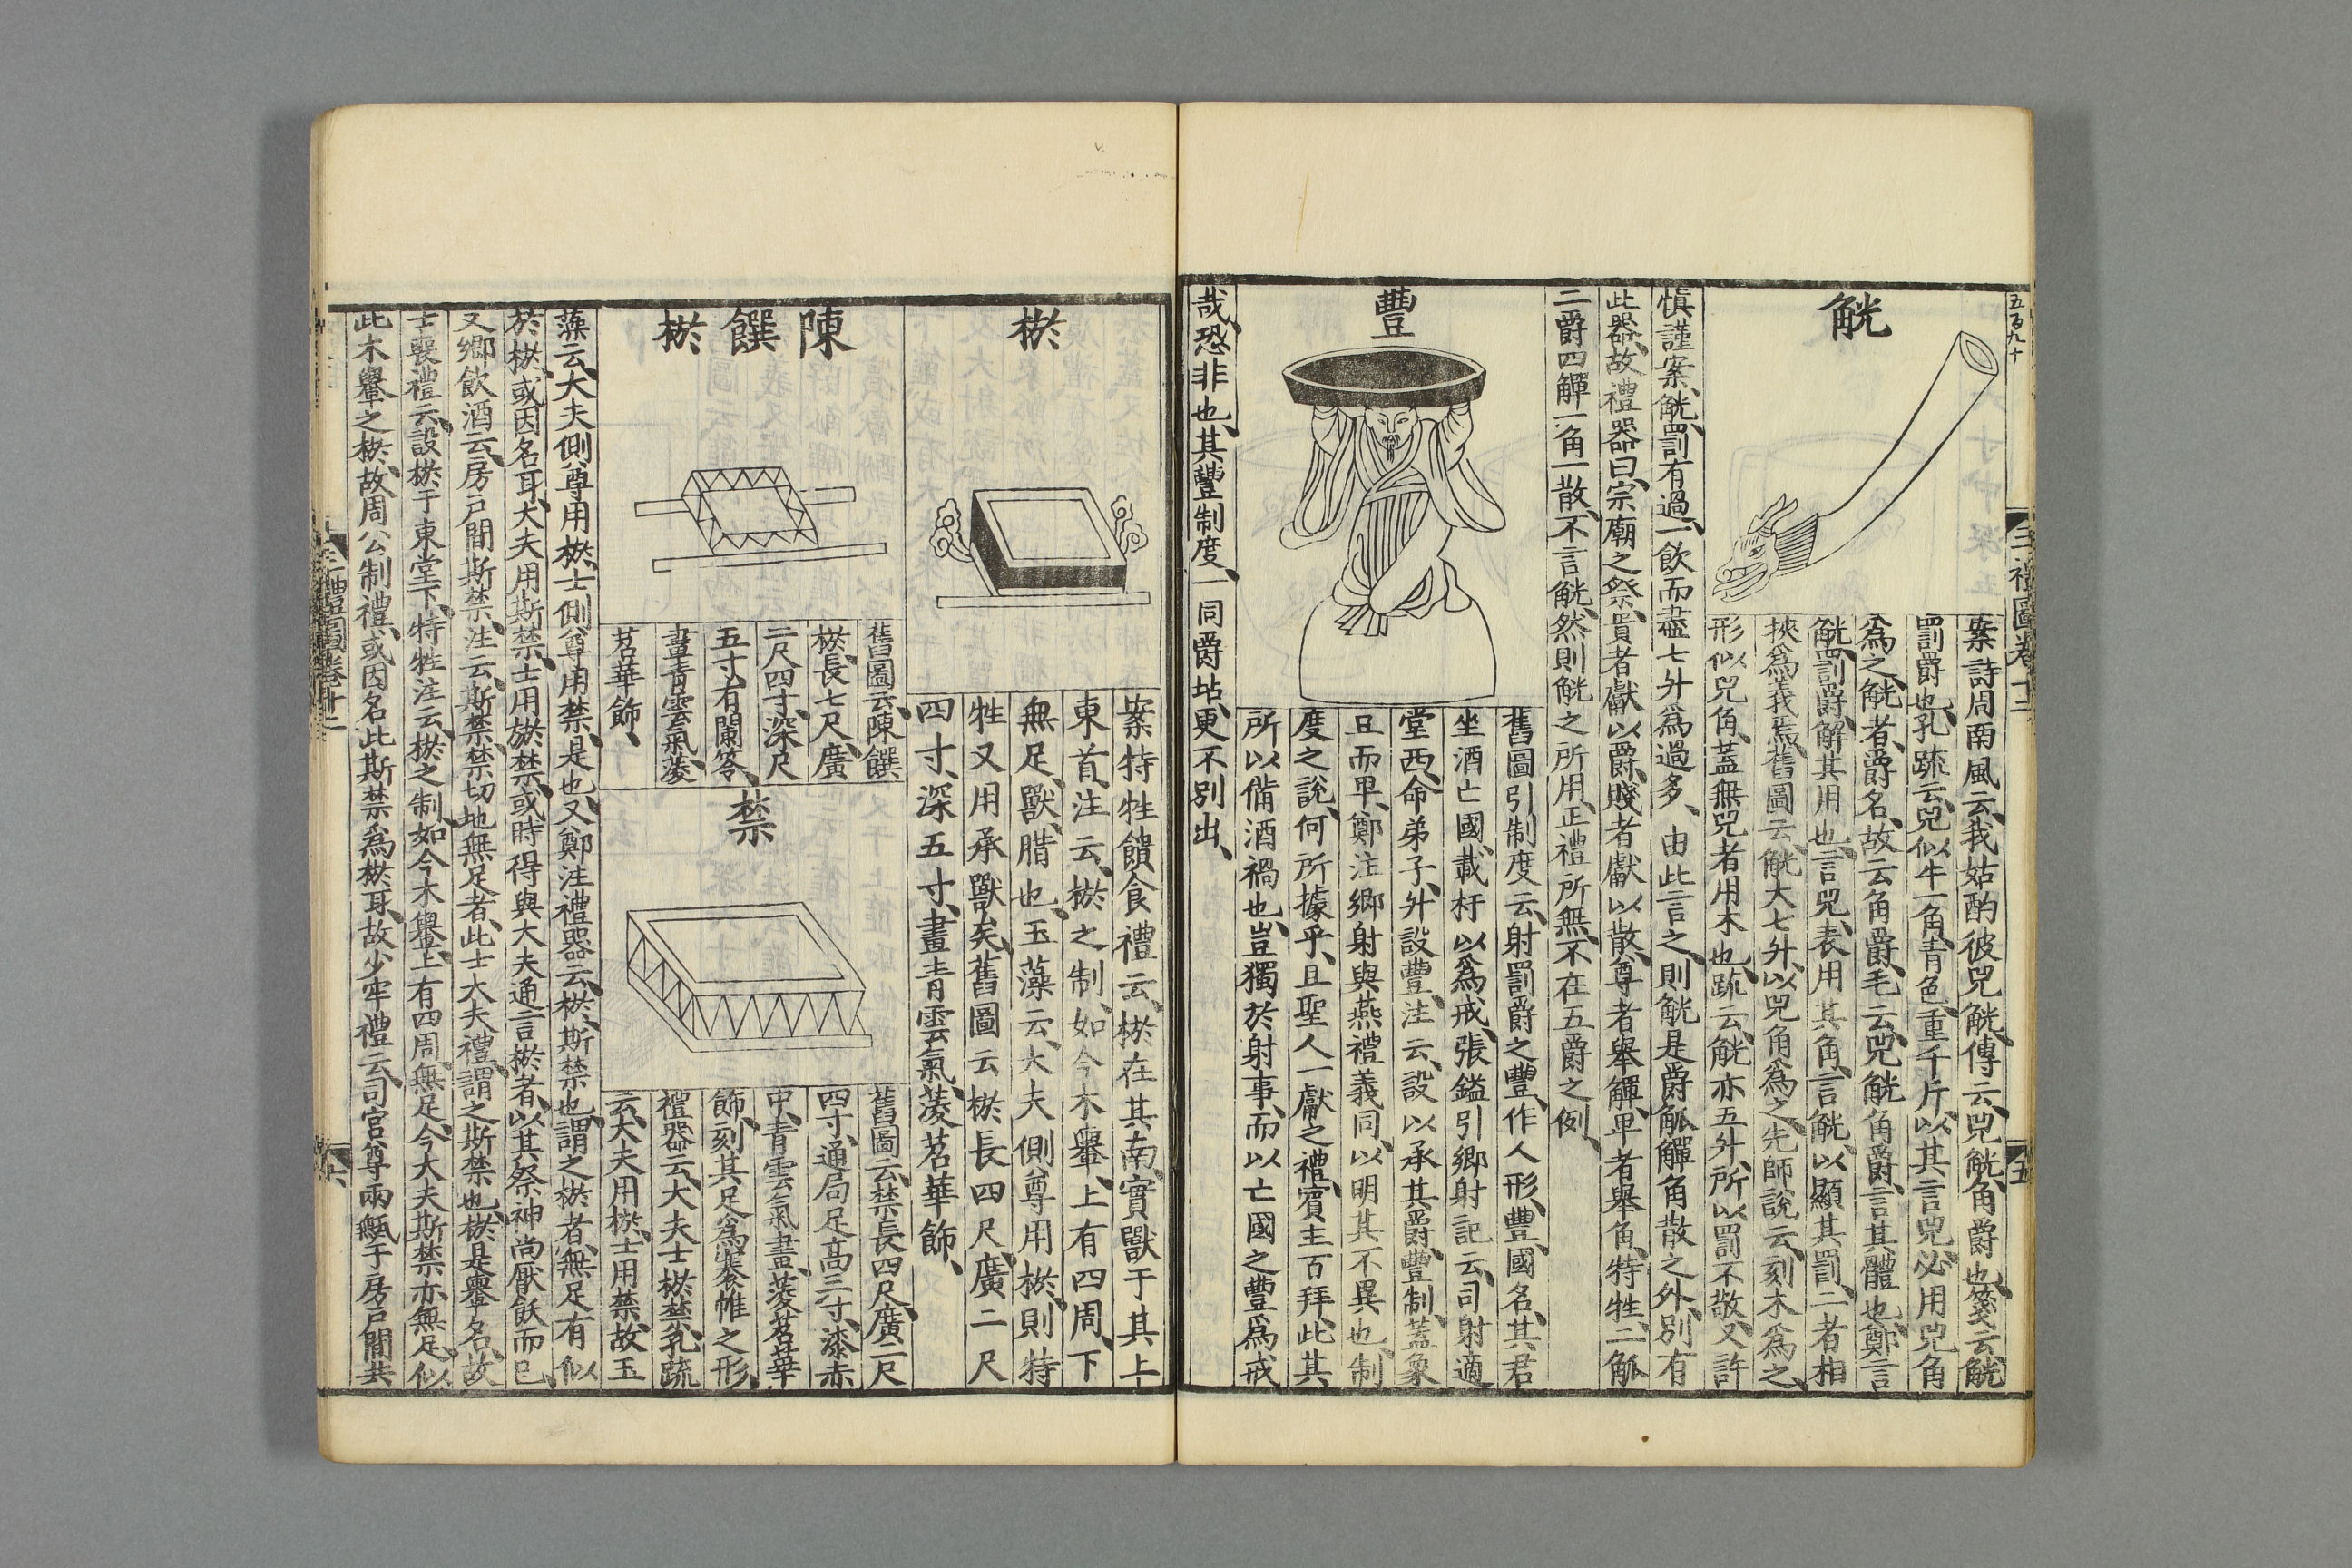 五百九十
三禮圖卷十二
五
觥
案詩周南風云我姑酌彼兕觥傳云兕觥角爵也箋云觥
罰爵也孔疏云兕似牛一角青色重千斤以其言兕必用兕角
爲之觥者爵名故云角爵毛云兕觥角爵言其體也鄭言
觥罰爵解其用也言兕表用其角言觥以顯其罰二者相
挾爲義焉舊圖云觥大七升以兕角爲之先師說云刻木爲之
形似兕角蓋無兕者用木也疏云觥亦五升所以罰不敬又許
愼謹案觥罰有過一飲而盡七升爲過多由此言之則觥是爵觚觶角散之外別有
此器故禮器曰宗廟之祭貴者獻以爵賤者獻以散尊者舉觶卑者舉角特牲二觚
二爵四觶一角一散不言觥然則觥之所用正禮所無不在五爵之例
豐
舊圖引制度云射罰爵之豐作人形豐國名其君
坐酒亡國載杅以爲戒張鎰引鄉射記云司射適
堂西命弟子升設豐注云設以承其爵豐制蓋象
豆而卑鄭注鄉射與燕禮義同以明其不異也制
度之說何所據乎且聖人一獻之禮賓主百拜此其
所以備酒禍也豈獨於射事而以亡國之豐爲戒
哉恐非也其豐制度一同爵坫更不別出
棜
案特牲饋食禮云棜在其南實獸于其上
東首注云棜之制如今木轝上有四周下
無足獸腊也玉藻云大夫側尊用棜則特
牲又用承獸矣舊圖云棜長四尺廣二尺
四寸深五寸畫青雲氣菱苕華飾
陳饌棜
舊圖云陳饌
棜長七尺廣
二尺四寸深尺
五寸有闌笭
畫青雲氣菱
苕華飾
禁
舊圖云禁長四尺廣二尺
四寸通局足高三寸漆赤
中青雲氣畫菱苕華
飾刻其足爲褰帷之形
禮器云大夫士棜禁孔疏
云大夫用棜士用禁故玉
藻云大夫側尊用棜士側尊用禁是也又鄭注禮器云棜斯禁也謂之棜者無足有似
於棜或因名耳大夫用斯禁士用棜禁或時得與大夫通言棜者以其祭神尚厭飫而已
又鄉飲酒云房戶間斯禁注云斯禁禁切地無足者此士大夫禮謂之斯禁也棜是轝名故
士喪禮云設棜于東堂下特牲注云棜之制如今木轝上有四周無足今大夫斯禁亦無足似
此木轝之棜故周公制禮或因名此斯禁爲棜耳故少牢禮云司宮尊兩甒于房戶間共
三禮圖卷十二
六